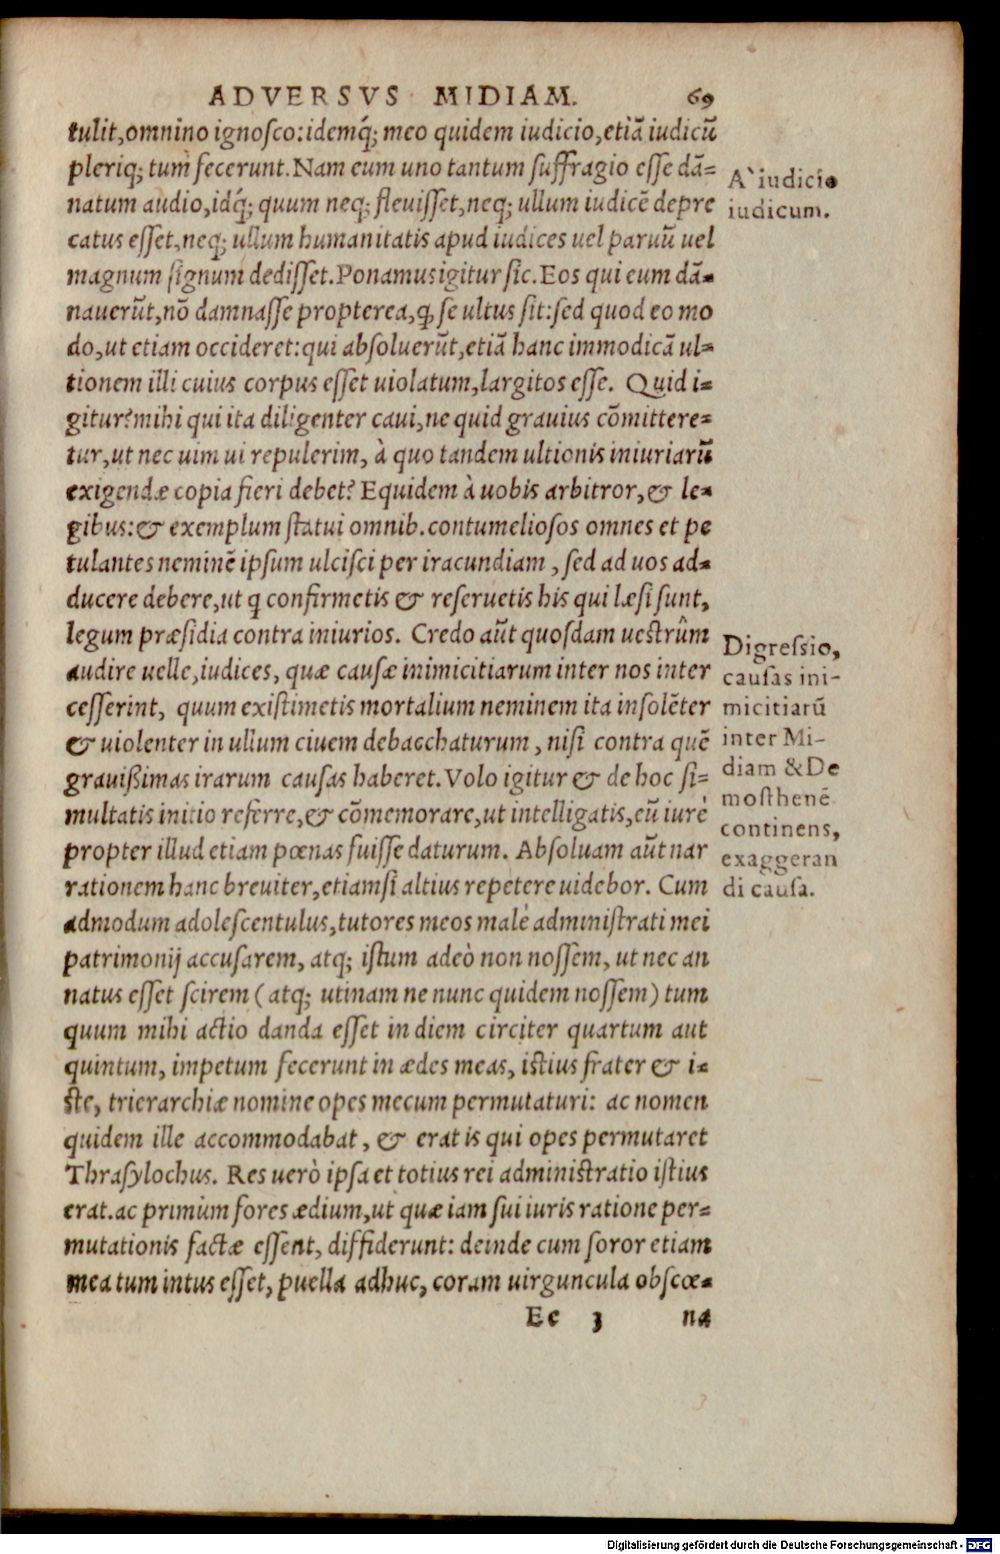 ADVERSVS MIDIAM. 69
tulit, omnino ignosco: idemq́; meo quidem iudicio, etiā iudicū
pleriq; tum fecerunt. Nam eum uno tantum suffragio esse dā=
natum audio, idq́; quum neq; fleuisset, neq; ullum iudicē depre
catus esset, neq; ullum humanitatis apud iudices uel paruū uel
magnum signum dedisset. Ponamus igitur sic. Eos qui eum dā=
nauerūt, nō damnasse propterea, ꝙ se ultus sit: sed quod eo mo
do, ut etiam occideret: qui absoluerūt, etiā hanc immodicā ul=
tionem illi cuius corpus esset uiolatum, largitos esse. Quid i=
gitur? mihi qui ita diligenter caui, ne quid grauius cōmittere=
tur, ut nec uim ui repulerim, à quo tandem ultionis iniuriarū
exigendæ copia fieri debet? Equidem à uobis arbitror, & le=
gibus: & exemplum statui omnib. contumeliosos omnes et pe
tulantes neminē ipsum ulcisci per iracundiam, sed ad uos ad=
ducere debere, ut q confirmetis & reseruetis his qui læsi sunt,
legum præsidia contra iniurios. Credo aūt quosdam uestrûm
audire uelle, iudices, quæ causæ inimicitiarum inter nos inter
cesserint, quum existimetis mortalium neminem ita insolēter
& uiolenter in ullum ciuem debacchaturum, nisi contra quē
grauißimas irarum causas haberet. Volo igitur & de hoc si=
multatis initio referre, & cōmemorare, ut intelligatis, eū iurè
propter illud etiam pœnas fuisse daturum. Absoluam aūt nar
rationem hanc breuiter, etiamsi altius repetere uidebor. Cum
admodum adolescentulus, tutores meos malè administrati mei
patrimonij accusarem, atq; istum adeò non nossem, ut nec an
natus esset scirem (atq; utinam ne nunc quidem nossem) tum
quum mihi actio danda esset in diem circiter quartum aut
quintum, impetum fecerunt in ædes meas, istius frater & i=
ste, trierarchiæ nomine opes mecum permutaturi: ac nomen
quidem ille accommodabat, & erat is qui opes permutaret
Thrasylochus. Res uerò ipsa et totius rei administratio istius
erat. ac primùm fores ædium, ut quæ iam sui iuris ratione per=
mutationis factæ essent, diffiderunt: deinde cum soror etiam
mea tum intus esset, puella adhuc, coram uirguncula obscœ=
Ee 3 na
A` iudicio
iudicum.
Digressio,
causas ini-
micitiarū
inter Mi-
diam & De
mosthenē
continens,
exaggeran
di causa.
Digitalisierung gefördert durch die Deutsche Forschungsgemeinschaft - DFG